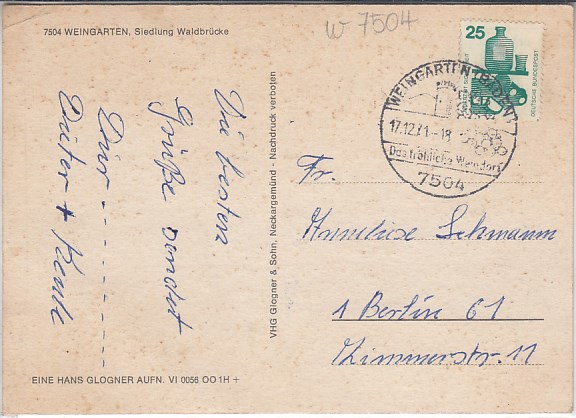 w 7504
7504 WEINGARTEN, Siedlung Waldbrücke
25
DEUTSCHE BUNDESPOST
WEINGARTEN (BADEN)
17.12.71-18
Das fröhliche Weindorf
7504
Die besten
Grüße sendet
Dir
Dieter +
VHG Glogner & Sohn, Neckargemünd - Nachdruck verboten
Fr.
Anneliese Schmann
1 Berlin 61
Zimmerstr. 11
EINE HANS GLOGNER AUFN. VI 0056 OO 1H +